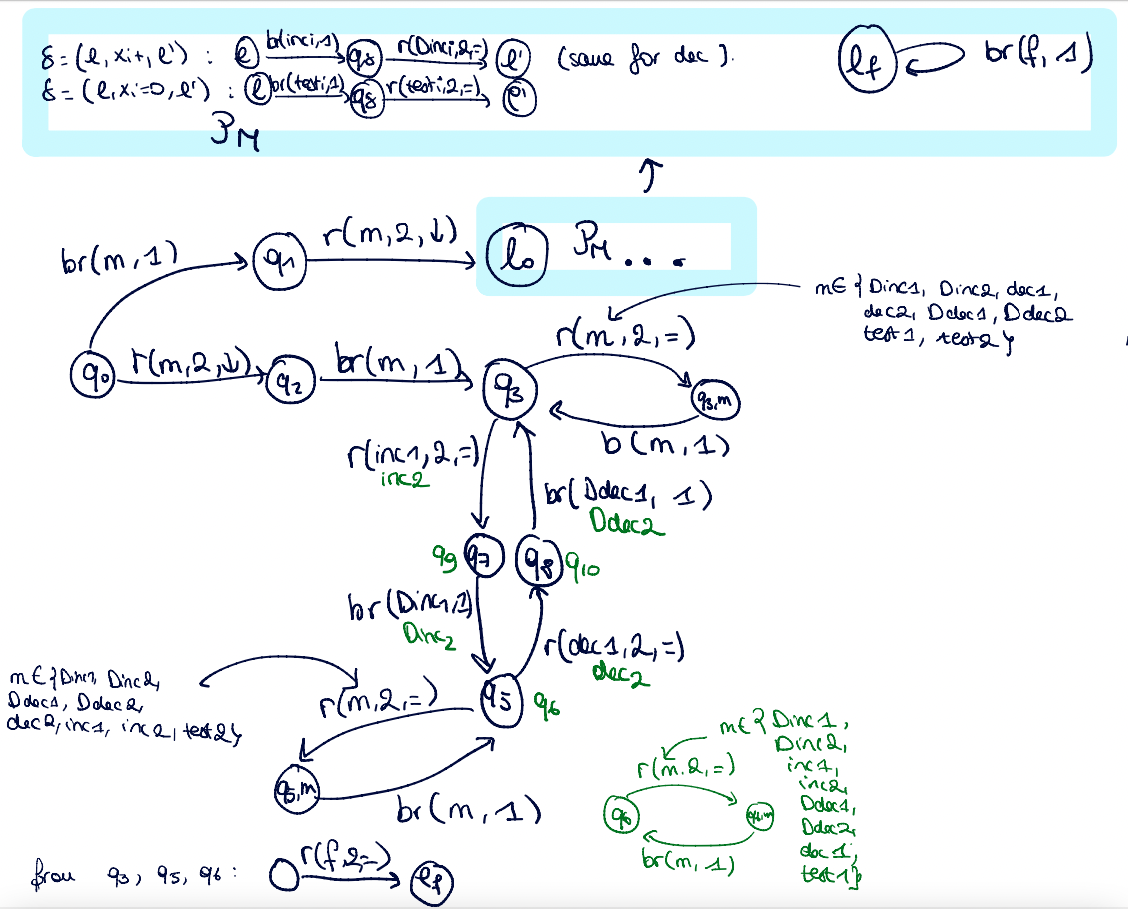 δ = (ℓ, xi+, ℓ') : ℓ br(inci,1) qδ r(Dinci,2,=) ℓ' (same for dec).
δ = (ℓ, xi=0, ℓ') : ℓ br(testi,1) qδ r(testi,2,=) ℓ'
ℓf br(f, 1)
PM
↑
br(m, 1) q1 r(m, 2, ↓) ℓ0 PM ...
m ∈ { Dinc1, Dinc2, dec1,
dec2, Ddec1, Ddec2
test1, test2}
q0 r(m, 2, ↓) q2 br(m, 1) q3 r(m, 2, =) q3,m
b(m, 1)
r(inc1, 2, =)
inc2
br(Ddec1, 1)
Ddec2
q9 q7 q8 q10
br(Dinc1, 1)
Dinc2
r(dec1, 2, =)
dec2
m ∈ {Dinc1, Dinc2,
Ddec1, Ddec2,
dec2, inc1, inc2, test2}
r(m, 2, =) q5 q6
q5,m br(m, 1)
m ∈ { Dinc1,
Dinc2,
inc1,
inc2,
Ddec1,
Ddec2,
dec1,
test1}
r(m, 2, =)
q6 q6,m
br(m, 1)
from q3, q5, q6 : r(f, 2, =) ℓf